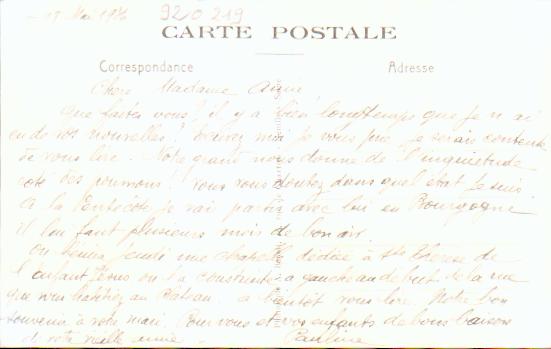 15 Mai 1926 920 219
CARTE POSTALE
Correspondance Adresse
Chère Madame Amie
Que faites vous? il y a bien longtemps que je n'ai
eu de vos nouvelles! écrivez moi je vous prie je serais contente
de vous lire. Notre grand nous donne de l'inquiétude
coté des poumons! Vous vous doutez dans quel état je suis
à la Pentecôte je vai partir avec lui en Bourgogne
il lui faut plusieurs mois de bon air.
On bénira jeudi une chapelle dédiée à Ste Thérèse de
l'enfant Jésus on l'a construite à gauche au debut de la rue
que vous habitiez au Plateau. a bientôt vous lire. Notre bon
souvenir à votre mari. Pour vous et vos enfants de bons baisers
de votre vieille amie. Pauline